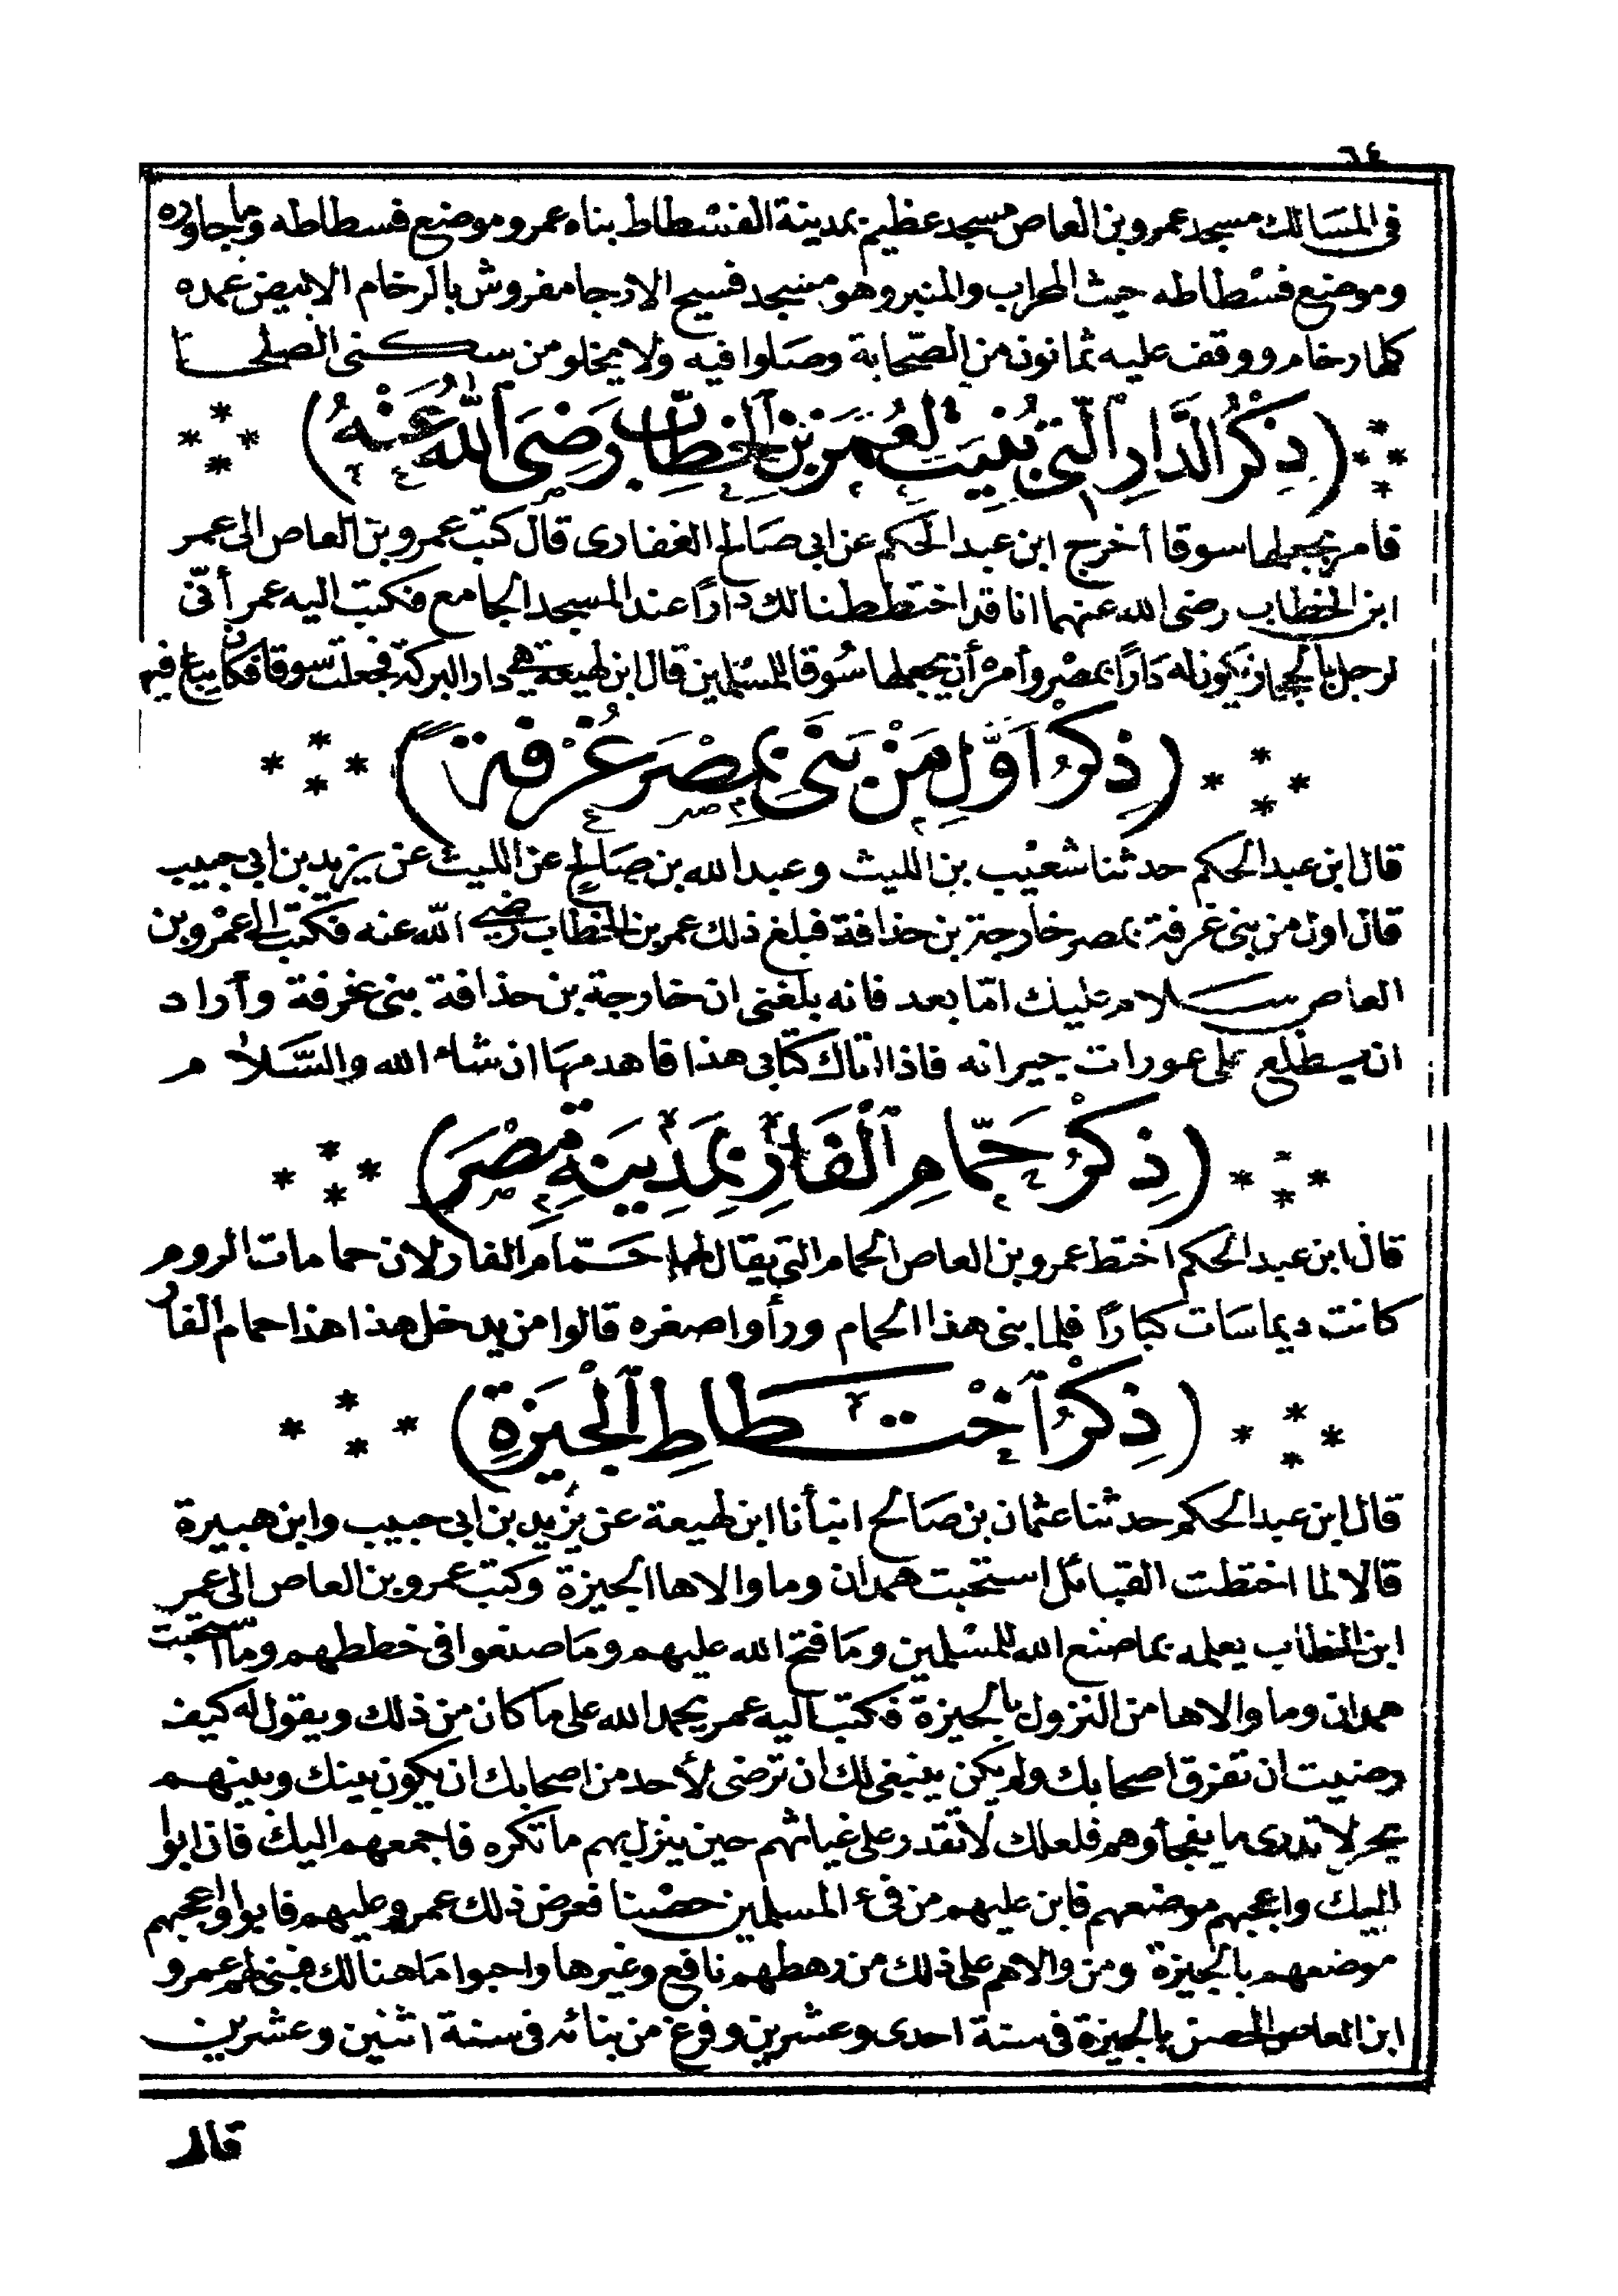 ٦٤
فى المسالك مسجد عمرو بن العاص مسجد عظيم بمدينة الفسطاط بناه عمرو موضع فسطاطه وما جاوره
وموضع فسطاطه حيث المحراب والمنبر وهو مسجد فسيح الارجا مفروش بالرخام الابيض عمده
كلها رخام ووقف عليه ثمانون من الصحابة وصلوا فيه ولا يخلو من سكنى الصلحا
(ذِكْرُ الدَّارِ الَّتِى بُنِيَت لِعُمَرَ بْنِ الخَطَّابِ رَضِىَ اللّهُ عَنْهُ)
فامر بجعلها سوقا أخرج ابن عبد الحكم عن ابى صالح الغفارى قال كتب عمرو بن العاص الى عمر
ابن الخطاب رضى الله عنهما انا قد اختططنا لك دارًا عند المسجد الجامع فكتب اليه عمر أنّى
لرجل بالحجاز يكون له دَارًا بمصر وأمرْ أن يجعلها سُوقا للمسْلمين قال ابن لهيعة هى دار البركة فجعلت سوقا فكان يباع فيها
(ذِكْرُ اَوَّلِ مَنْ بَنَى بِمِصْرَ غُرْفَةً)
قال ابن عبد الحكم حدثنا شعيْب بن الليث وعبد الله بن صالح عن الليث عن يزيد بن ابى حبيب
قال اول من بنى غرفة بمصر خارجة بن حذافة فبلغ ذلك عمر بن الخطاب رضى الله عنه فكتب الى عمْرو بن
العاص سلام عليك امّا بعد فانه بلغنى ان خارجة بن حذافة بنى غرفة وأراد
ان يسطلع على عورات جيرانه فاذا اتاك كتابى هذا فاهدمها ان شاء الله والسّلام
(ذِكْرُ حَمّامِ الْفَارِ بِمَدِينَةِ مِصْرَ)
قال ابن عبد الحكم اختط عمرو بن العاص الحمام التى يقال لها حَمّام الفار لان حمامات الروم
كانت ديماسات كبارًا فلما بنى هذا الحمام ورأوا صغره قالوا من يدخل هذا هذا حمام الفار
(ذِكْرُ اَخْتطَاطِ الْجِيزَةِ)
قال ابن عبد الحكم حدثنا عثمان بن صالح انبأنا ابن لهيعة عن يزيد بن ابى حبيب وابن هبيرة
قالا لما اختطت القبائل استحبت همدان وما والاها الجيزة وكتب عمرو بن العاص الى عمر
ابن الخطاب يعلمه بما صنع الله للمسْلمين ومَا فتح الله عليهم ومَا صنعوا فى خططهم وما استحبت
همدان وما والاها من النزول بالجيزة فكتب اليه عمر يحمد الله على ما كان من ذلك ويقول له كيف
رضيت ان تفرق اصحابك ولم يكن ينبغى لك ان ترضى لأحد من اصحابك ان يكون بينك وبينهم
بحر لا تدرى ما يفجأوهم فلعلك لا تقدر على غياثهم حين ينزل بهم ما تكره فاجمعهم اليك فان ابوا
اليك واعجبهم موضعهم فابن عليهم من فىء المسلمين حصْنا فعرض ذلك عمرو عليهم فابوا واعجبهم
موضعهم بالجيزة ومن والاهم على ذلك من رهطهم نافع وغيرها واحبوا مَا هنالك فبنى لهم عمرو
ابن العاص الحصن بالجيزة فى سنة احدى وعشرين وفرغ من بنائه فى سنة اثنين وعشرين
قال